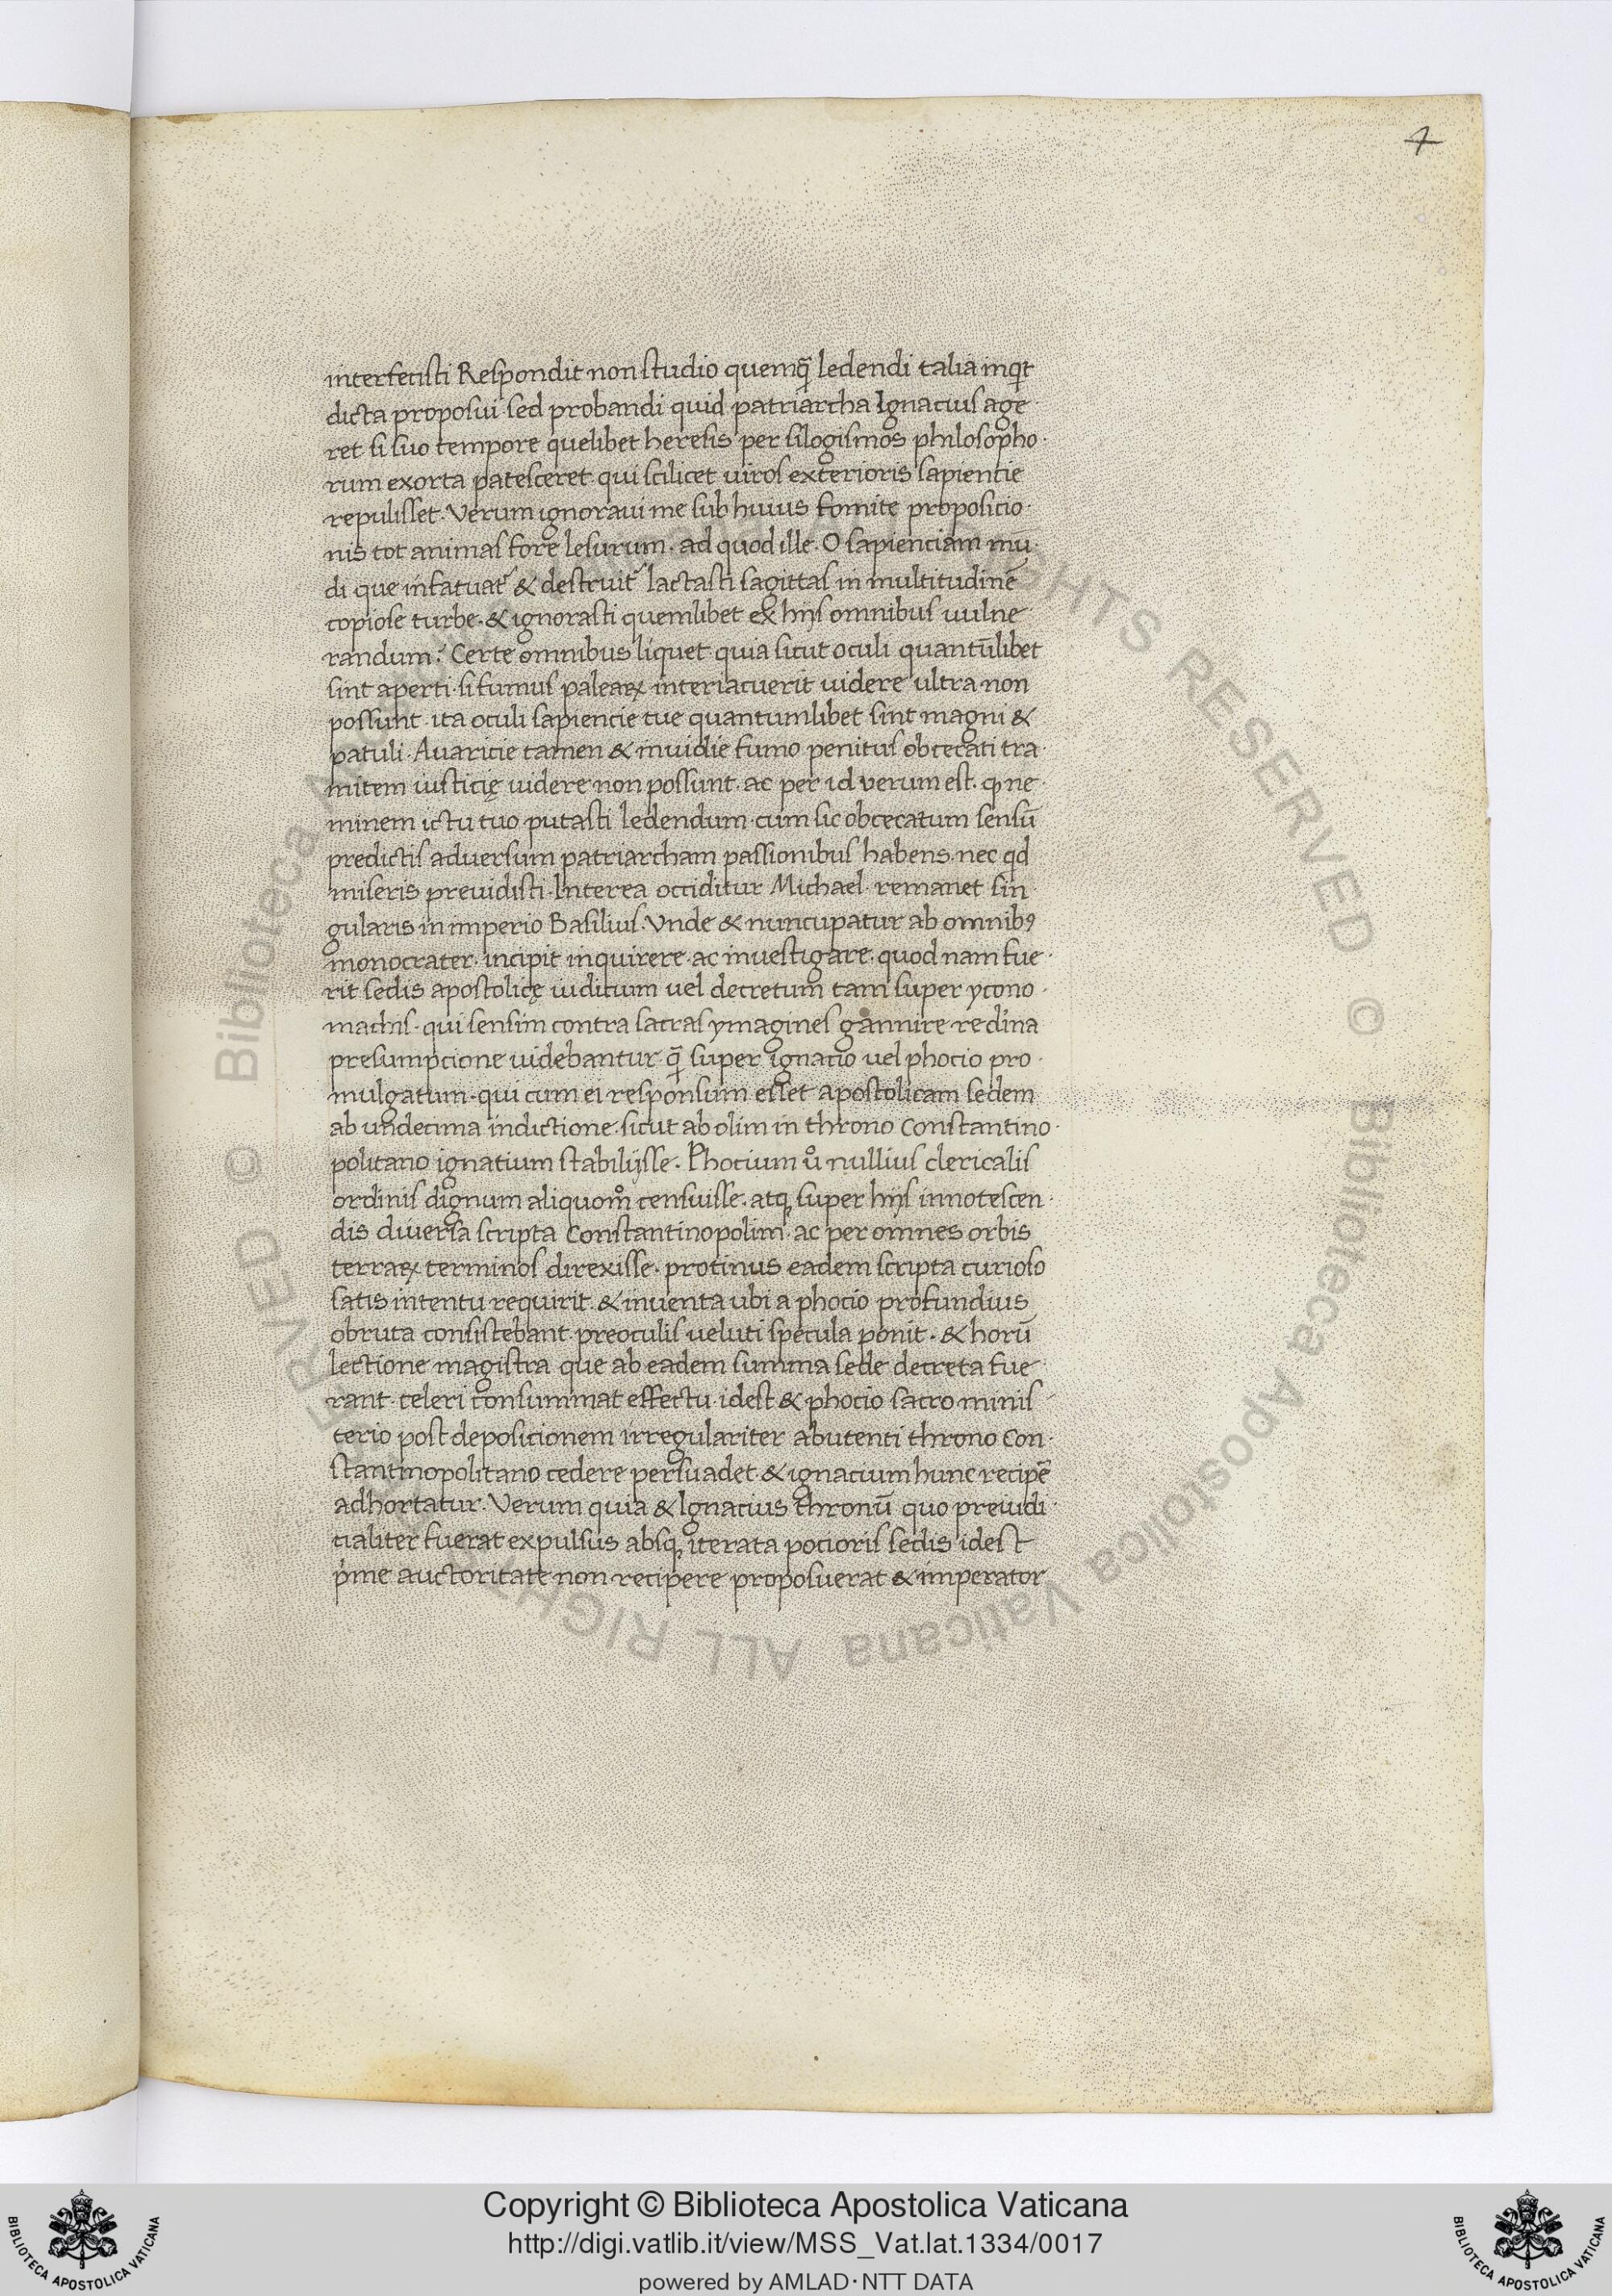 4
interfecisti Respondit non studio quemq̄ ledendi talia inqͥt
dicta proposui· sed probandi quid patriarcha Ignacius age·
ret si suo tempore quelibet heresis per silogismos philosopho·
rum exorta patesceret· qui scilicet uiros exterioris sapientie
repulisset· Verum ignoraui me sub huius fomite proposicio·
nis tot animas fore lesurum· ad quod ille· O sapienciam mu·
di que infatuat᷑ & destruit᷑ Iactasti sagittas in multitudinē
copiose turbe· & ignorasti quemlibet ex hijs omnibus uulne·
randum? Certe omnibus liquet quia sicut oculi quantūlibet
sint aperti· si fumus paleaꝝ interiacuerit uidere ultra non
possunt· ita oculi sapiencie tue quantumlibet sint magni &
patuli· Auaricie tamen & inuidie fumo penitus obcecati tra·
mitem iusticię uidere non possunt· ac per id verum est· ꝙ ne·
minem ictu tuo putasti ledendum· cum sic obcecatum sensū
predictis aduersum patriarcham passionibus habens· nec qd
miseris preuidisti· Interea occiditur Michael· remanet sin
gularis in imperio Basilius· Vnde & nuncupatur ab omnibꝰ
monocrater· incipit inquirere· ac inuestigare· quod nam fue·
rit sedis apostolicę iudicium uel decretum tam super ycono·
machis· qui sensim contra sacras ymagines gannire rediīna
presumpcione uidebantur· q̄ super ignacio uel phocio pro·
mulgatum· qui cum ei responsum esset apostolicam sedem
ab undecima indictione· sicut ab olim in throno Constantino·
politano ignatium stabilijsse· Phocium uͦ nullius clericalis
ordinis dignum aliquomͦ censuisse· atqꝫ super hijs innotescen·
dis diuersa scripta Constantinopolim· ac per omnes orbis
terraꝝ terminos direxisse· protinus eadem scripta curioso
satis intentu requirit· & inuenta ubi a phocio profundius
obruta consistebant· preoculis ueluti specula ponit· & horū
lectione magistra que ab eadem summa sede decreta fue·
rant· celeri consummat effectu· idest & phocio sacro minis·
terio post deposicionem irregulariter abutenti throno Con·
stantinopolitano cedere persuadet & ignacium hunc recipē
adhortatur· Verum quia & Ignacius thronū quo preiudi·
cialiter fuerat expulsus absqꝫ iterata pocioris sedis idest
pͥme auctoritate non recipere proposuerat & imperator
© Biblioteca Apostolica Vaticana ALL RIGHTS RESERVED
© Biblioteca Apostolica Vaticana ALL RIGHTS RESERVED
Copyright © Biblioteca Apostolica Vaticana
http://digi.vatlib.it/view/MSS_Vat.lat.1334/0017
powered by AMLAD·NTT DATA
BIBLIOTECA APOSTOLICA VATICANA
BIBLIOTECA APOSTOLICA VATICANA